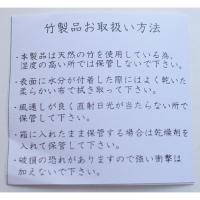 竹製品お取扱い方法
・本製品は天然の竹を使用している為、
湿度の高い所では保管しないで下さい。
・表面に水分が付着した際にはよく乾いた
柔らかい布で拭き取って下さい。
・風通しが良く直射日光が当たらない所で
保管して下さい。
・箱に入れたまま保管する場合は乾燥剤を
入れて保管して下さい。
・破損の恐れがありますので強い衝撃は
加えないで下さい。